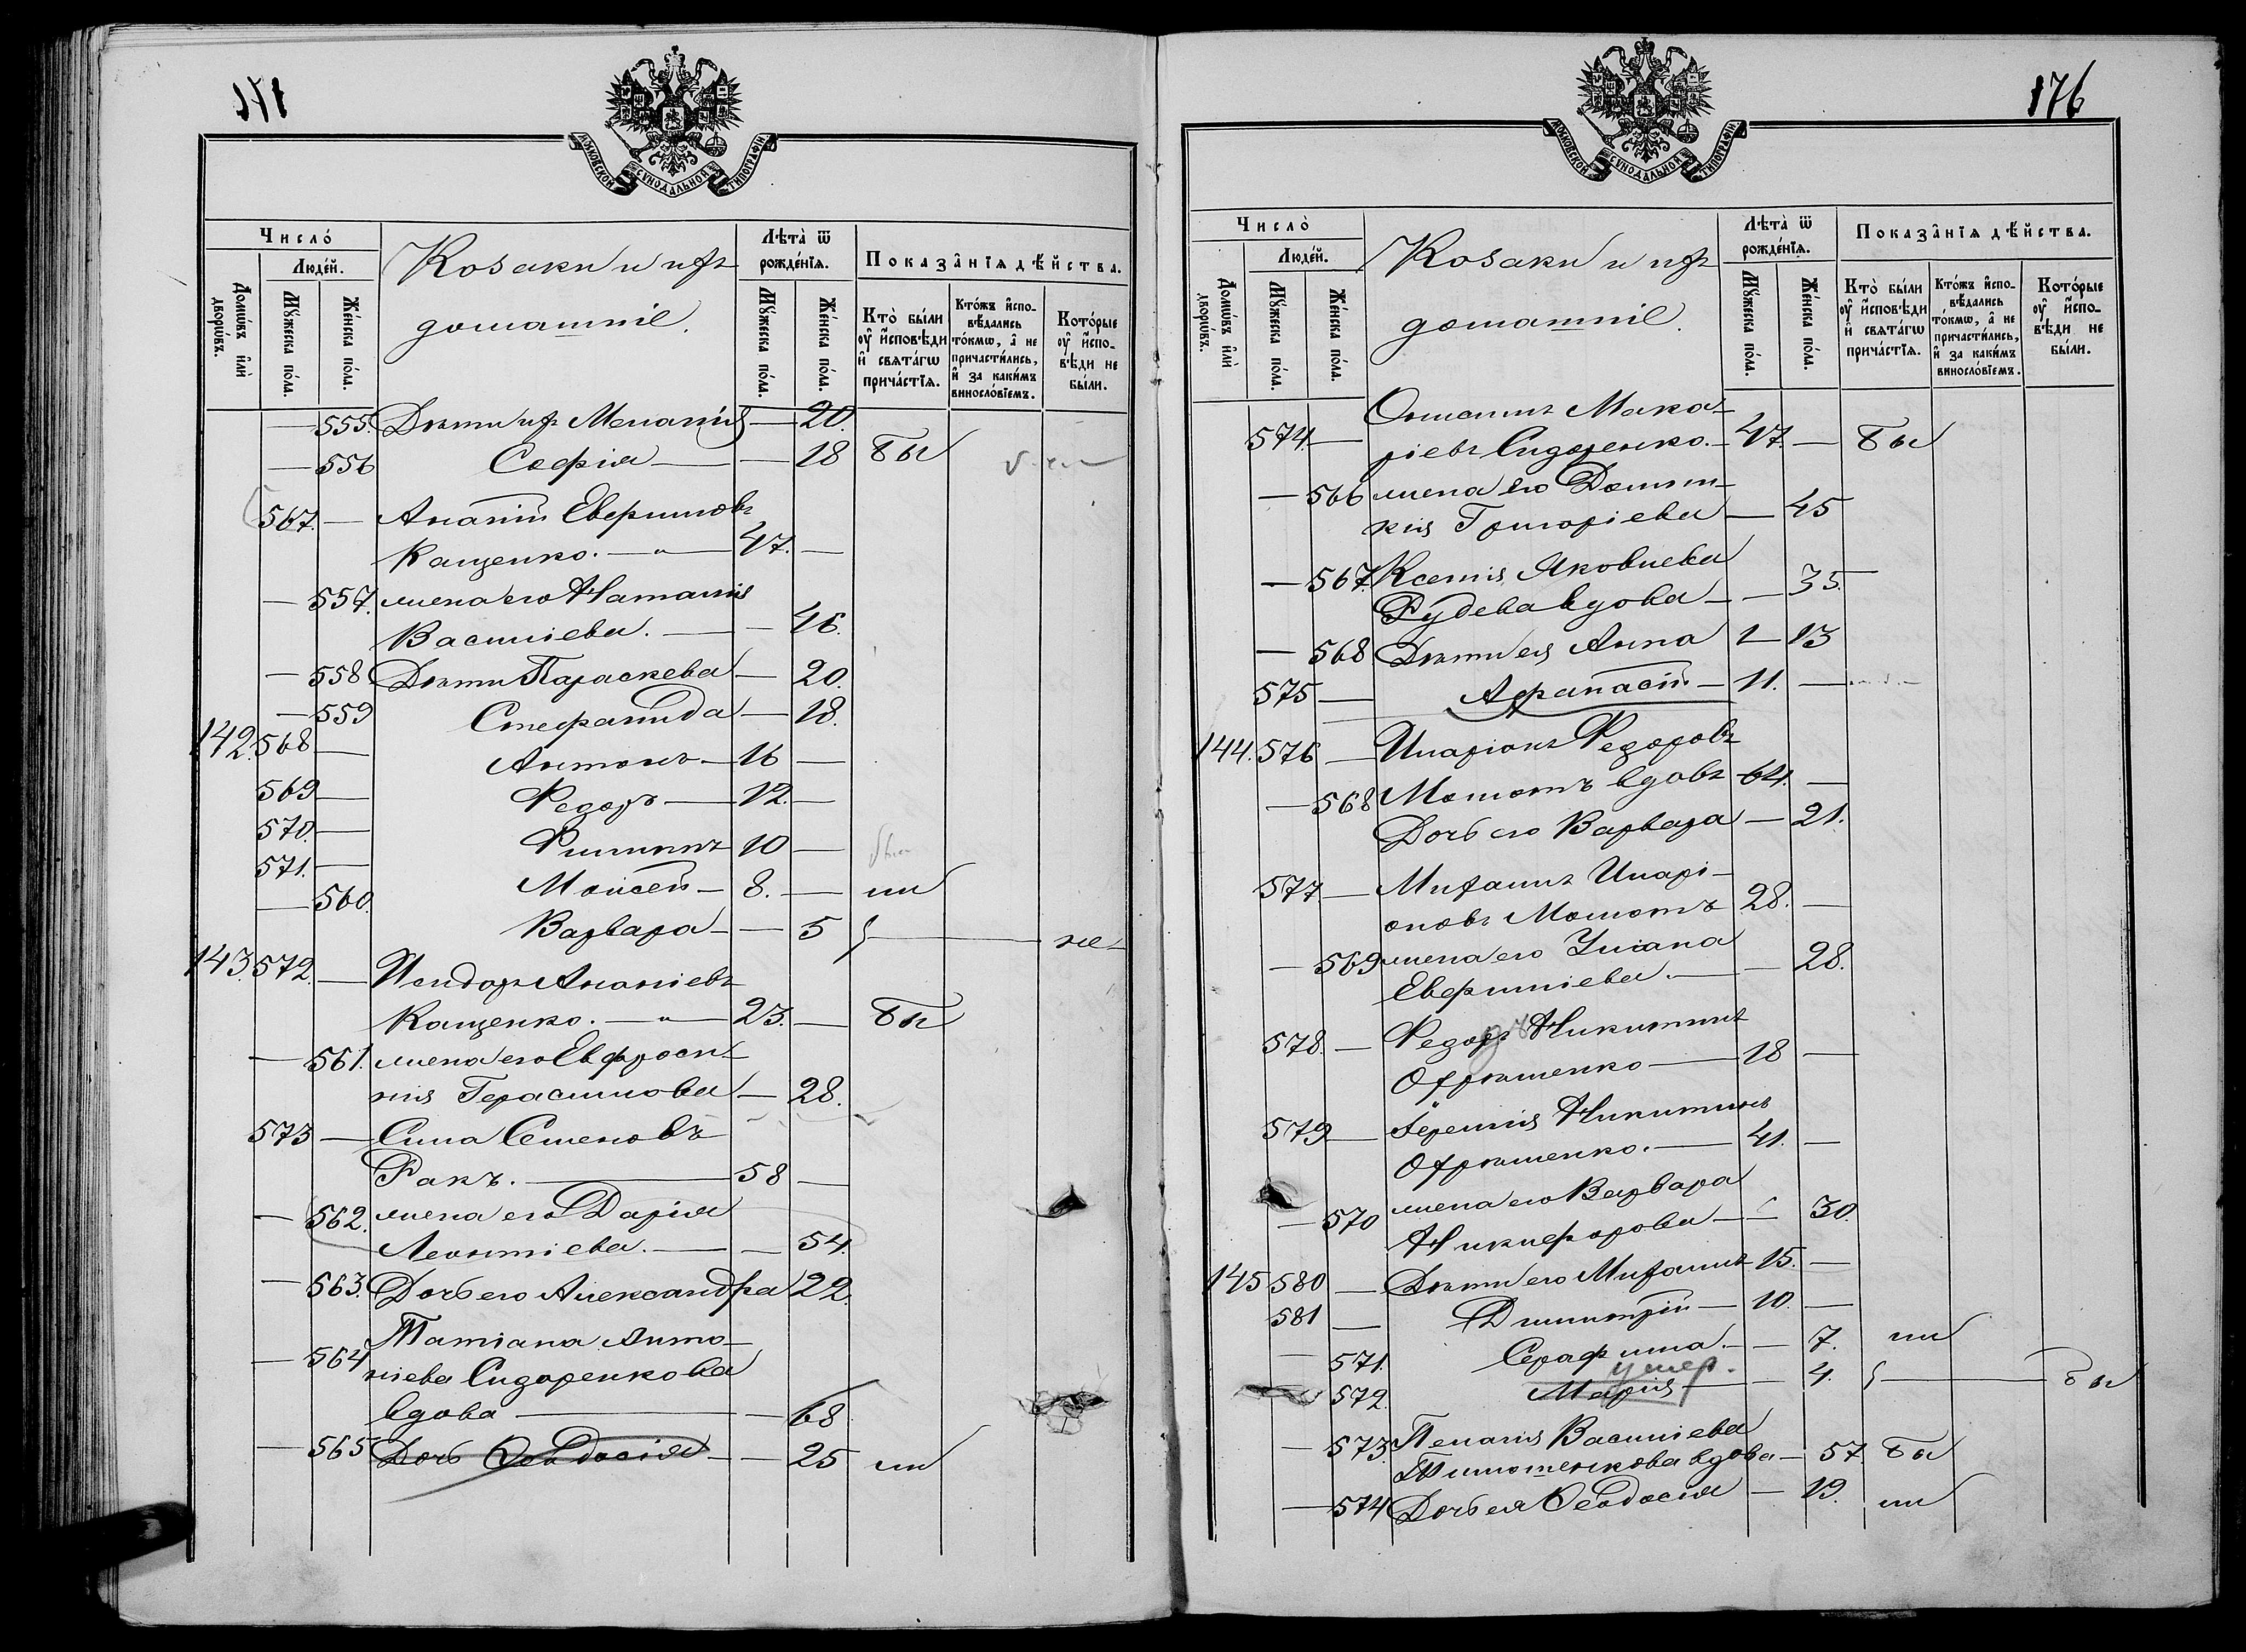 171
МОСКОВСКОЙ СУНОДАЛЬНОЙ ТИПОГРАФІИ
Число̀
Людéй.
Домѡ́въ и҆лѝ дворѡ́въ.
Мꙋ́жеска по́ла.
Же́нска по́ла.
Козаки и ихъ
домашніе.
Лѣта̀ ѿ рожде́нїѧ.
Мꙋ́жеска по́ла.
Же́нска по́ла.
Показа̂нїѧ дѣ́йства.
Кто̀ бы́ли ᲂу҆ и҆сповѣди и҆ свѧта́гѡ прича́стїѧ.
Кто́жъ и҆сповѣдались то́кмѡ, а҆ не причасти́лись, и҆ за каки́мъ винословїемъ.
Кото́рые ᲂу҆ и҆сповѣди не бы́ли.
— 555. Дѣти ихъ Меланія — 20.
— 556 Софія — — 18 бы
567. — Ананій Евфимовъ
Кащенко. — „ — 47. —
— 557. жена его Наталія
Василіева. — — 46.
— 558 Дѣти Параскева — 20.
— 559 Стефанида — 18.
142. 568 — Антонъ — 16 —
569 — Федоръ — 12. —
570. — Филиппъ 10 —
571. — Моисей — 8. — ли
— 560. Варвара — — 5 — не
143. 572. — Исидоръ Ананіевъ
Кащенко. — „ — 23. — бы
— 561. жена его Евфроси-
нія Герасимова — 28.
573 — Сила Семеновъ
Ракъ. — 58 —
— 562. жена его Дарія
Леонтіева. — — 54.
— 563. Дочь его Александра 22.
— 564 Татіана Анто-
ніева Сидоренкова
вдова — — 68
— 565 Дочь Ѳеодосія — — 25 ли
176
МОСКОВСКОЙ СУНОДАЛЬНОЙ ТИПОГРАФІИ
Число̀
Людéй.
Домѡ́въ и҆лѝ дворѡ́въ.
Мꙋ́жеска по́ла.
Же́нска по́ла.
Козаки и ихъ
домашніе.
Лѣта̀ ѿ рожде́нїѧ.
Мꙋ́жеска по́ла.
Же́нска по́ла.
Показа̂нїѧ дѣ́йства.
Кто̀ бы́ли ᲂу҆ и҆сповѣди и҆ свѧта́гѡ прича́стїѧ.
Кто́жъ и҆сповѣдались то́кмѡ, а҆ не причасти́лись, и҆ за каки́мъ винословїемъ.
Кото́рые ᲂу҆ и҆сповѣди не бы́ли.
Мака-
574. — ріевъ Сидоренко. — 47. — бы
— 566 жена его Домни-
кія Григоріева — 45
— 567. Ксенія Яковлева
Рудева вдова — — 35.
— 568 Дѣти ея Анна — 13
575 — Афанасій — 11. —
144. 576 — Иларіонъ Федоровъ
Молотъ вдовъ 64. —
— 568 Дочь его Варвара — 21.
577 — Михаилъ Иларі-
оновъ Молотъ 28. —
— 569 жена его Уліана
Евфиміева. — — 28.
578. — Федоръ Никитинъ
Охрименко — 18 —
579 — Іеремія Никитинъ
Охрименко. — 41. —
— 570 жена его Варвара
Никифорова — — 30.
145 580 — Дѣти его Михаилъ 15. —
581 — Димитрій — 10. —
— 571. Серафима. — — 7. ли
умер.
572. Марія — — 4. — бы
— 573. Пелагія Василіева
Тимошенкова вдова — 57. бы
— 574 Дочь ея Ѳеодосія — 19. ли